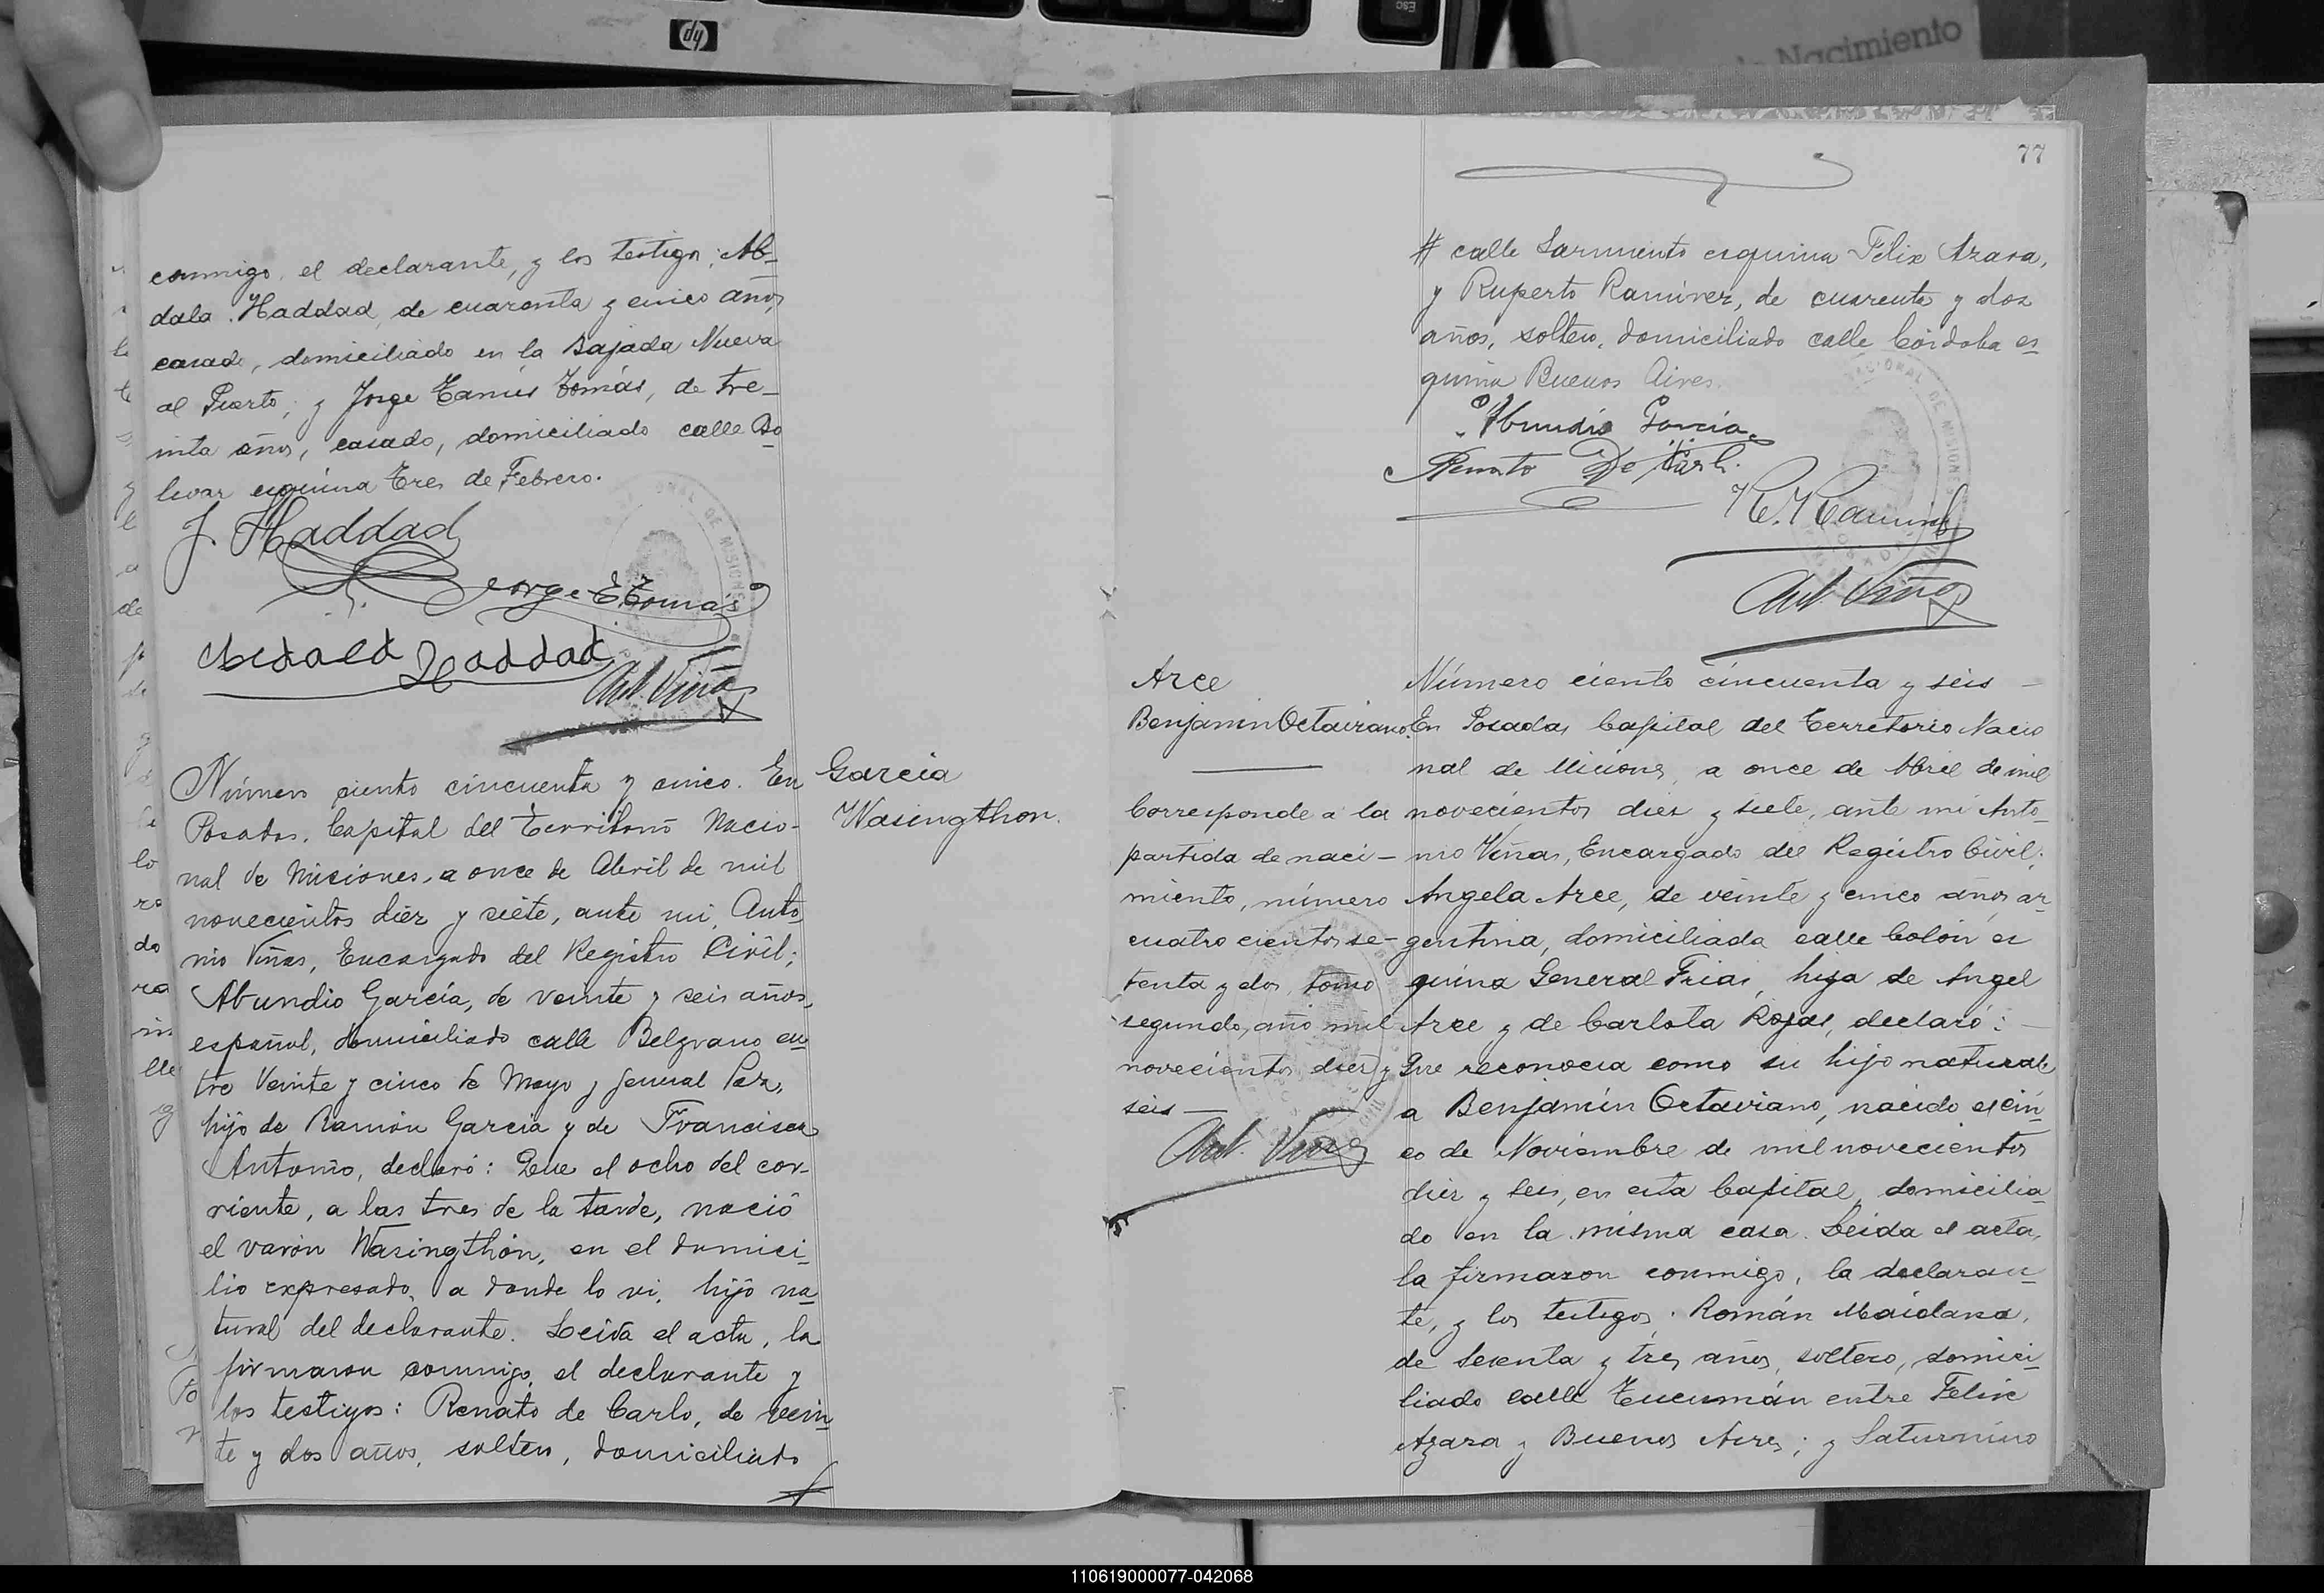 hp
ESC
Nacimiento
conmigo, el declarante, y los testigos: Ab-
dala Haddad, de cuarenta y cinco años,
casado, domiciliado en la Bajada Nueva
al Puerto; y Jorge Tanús Tomás, de tre-
inta años, casado, domiciliado calle Bo
livar esquina Tres de Febrero.
J. Haddad
Jorge T. Tomás
Haddad
Ant. Viñas
Número ciento cincuenta y cinco. En
Posadas, Capital del Territorio Nacio-
nal de Misiones, a once de Abril de mil
novecientos diez y siete, ante mi, Anto
nio Viñas, Encargado del Registro Civil;
Abundio García, de veinte y seis años,
español, domiciliado calle Belgrano en
tre Veinte y cinco de Mayo y General Paz,
hijo de Ramón García y de Francisca
Antonio, declaró: Que el ocho del cor-
riente, a las tres de la tarde, nació
el varón Wasingthón, en el domici
lio expresado, a donde lo vi, hijo na
tural del declarante. Leida el acta, la
firmaron conmigo, el declarante y
los testigos: Renato de Carlo, de vein
te y dos años, soltero, domiciliado
#
Garcia
Wasingthon.
77
# calle Sarmiento esquina Felix Azara,
y Ruperto Ramirez, de cuarenta y dos
años, soltero, domiciliado calle Córdoba es
quina Buenos Aires.
Abundio García
Renato De Carli
R. Ramirez
Ant. Viñas
Arce
Benjamin Octaviano.
Corresponde a la
partida de naci-
miento, número
cuatro cientos se-
tenta y dos, tomo
segundo, año mil
novecientos diez y
seis
Ant. Viñas
Número ciento cincuenta y seis
En Posadas Capital del Territorio Nacio
nal de Misiones, a once de Abril de mil
novecientos diez y siete, ante mi Anto
nio Viñas, Encargado del Registro Civil;
Angela Arce, de veinte y cinco años, ar
gentina, domiciliada calle Colón es
quina General Frias, hija de Angel
Arce y de Carlota Rojas, declaró:
Que reconocia como su hijo natural
a Benjamín Octaviano, nacido el cin
co de Noviembre de mil novecientos
diez y seis, en esta Capital, domicilia
do en la misma casa. Leida el acta,
la firmaron conmigo, la declaran
te, y los testigos: Román Maidana,
de sesenta y tres años, soltero, domici
liado calle Tucumán entre Felix
Azara y Buenos Aires; y Saturnino
110619000077-042068